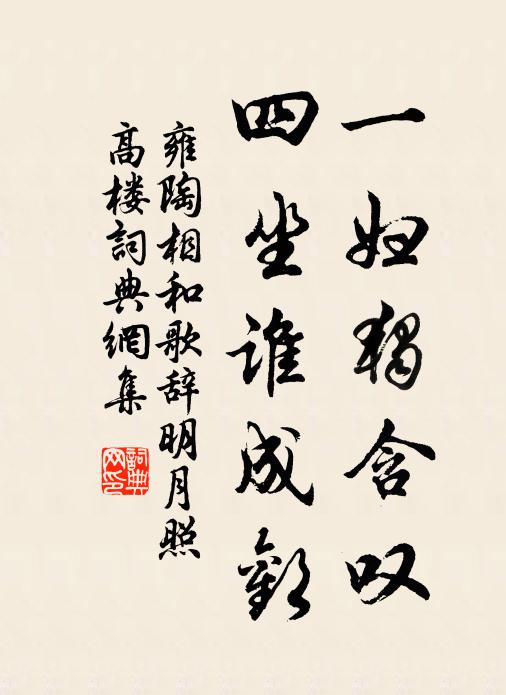 一妇独含叹
四坐谁成欢
雍陶相和歌辞明月照
高楼詞典網集
詞典網印